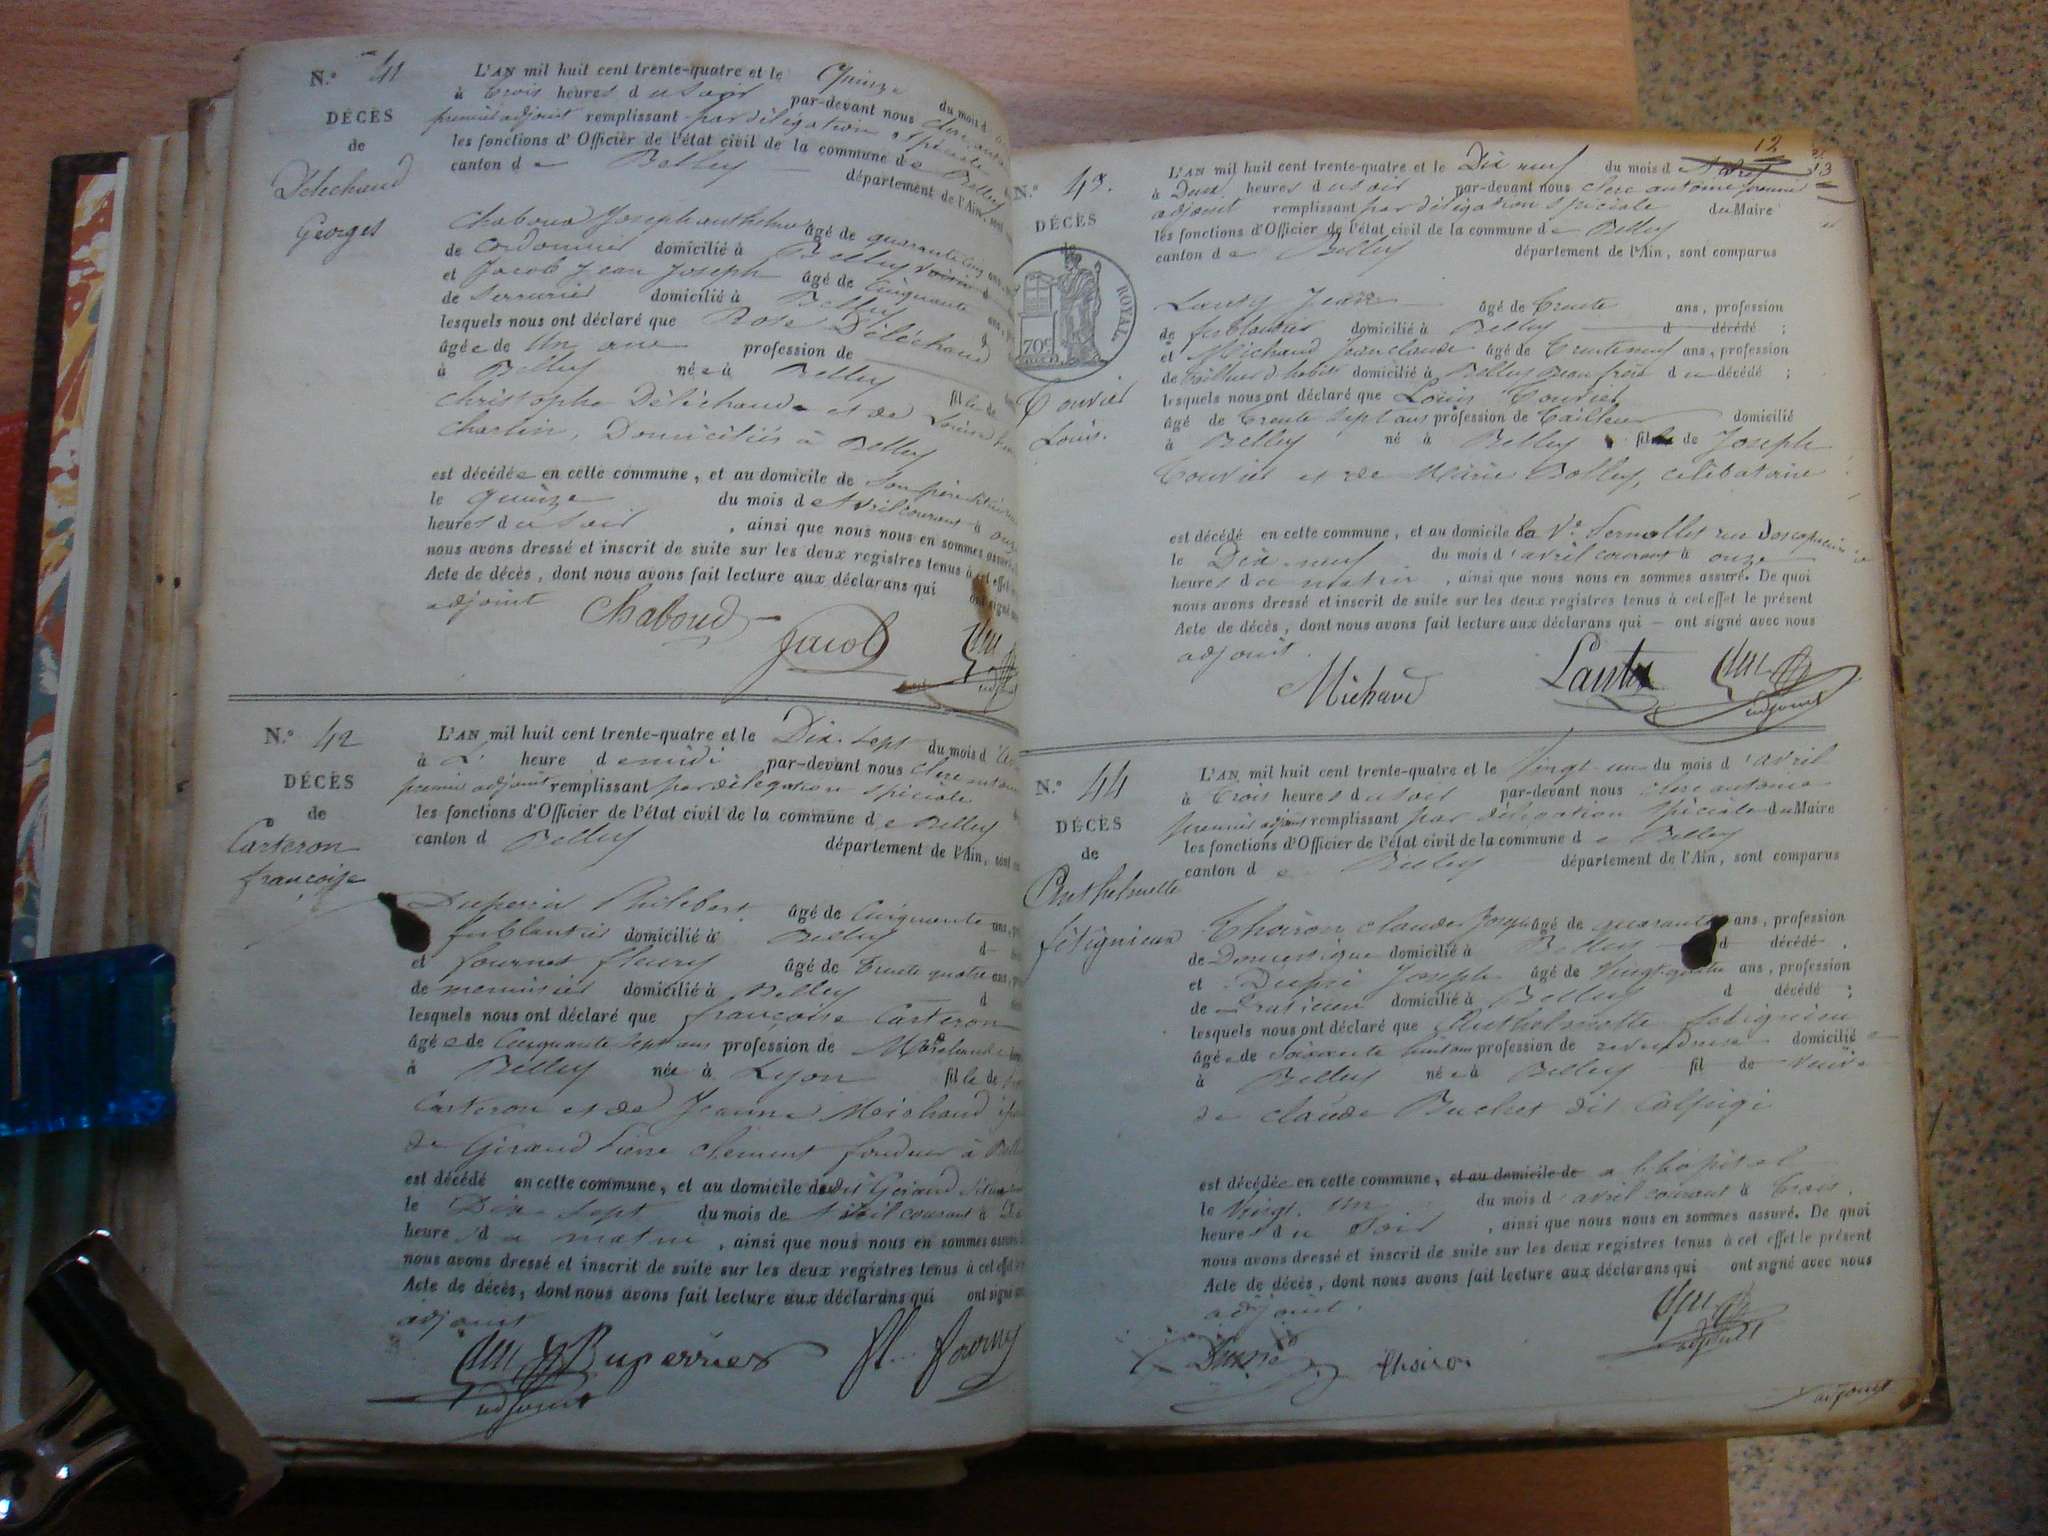 N.º 41
DÉCÈS
de
Deléchaud
Georges
L'AN mil huit cent trente-quatre et le Quinze du mois d
à trois heures du soir par-devant nous Clerc
premier adjoint remplissant par délégation spéciale
les fonctions d'Officier de l'état civil de la commune de Belley
canton de Belley département de l'Ain,
Chaboud Joseph anthelme âgé de quarante cinq ans
de Cordonnier domicilié à Belley voisin d
et Jacob Jean Joseph âgé de Cinquante ans
de Serrurier domicilié à Belley d
lesquels nous ont déclaré que Rose Déléchaud
âgée de Un an profession de
à Belley née à Belley fille de
Christophe Déléchaud et de Louise
Charlin, Domiciliés à Belley
est décédée en cette commune, et au domicile de son père
le quinze du mois de Avril courant à onze
heures du soir, ainsi que nous nous en sommes
nous avons dressé et inscrit de suite sur les deux registres tenus à cet effet
Acte de décès, dont nous avons fait lecture aux déclarans qui ont signé
adjoint
Chaboud
Jacob
N.º 42
DÉCÈS
de
Carteron
françoise
L'AN mil huit cent trente-quatre et le Dix-Sept du mois d'
à heure de midi par-devant nous Clerc antoine
premier adjoint remplissant par délégation spéciale
les fonctions d'Officier de l'état civil de la commune de Belley
canton d Belley département de l'Ain,
Duperrier Philibert âgé de Cinquante ans,
ferblantier domicilié à Belley d
et fournet fleury âgé de trente quatre ans
de menuisier domicilié à Belley d
lesquels nous ont déclaré que françoise Carteron
âgée de Cinquante Sept ans profession de Marchande
à Belley née à Lyon fille de
Carteron et de Jeanne Meichaud
de Giraud Pierre Clément fondeur à Belley
est décédé en cette commune, et au domicile dudit Giraud
le Dix-Sept du mois de Avril courant à
heures du matin, ainsi que nous nous en sommes
nous avons dressé et inscrit de suite sur les deux registres tenus à cet effet
Acte de décès, dont nous avons fait lecture aux déclarans qui ont signé
adjoint
Duperrier
fl. fournet
adjoint
12
13
N.º 43.
DÉCÈS
de
ROYAL
70c
Touvier
Louis.
L'AN mil huit cent trente-quatre et le Dix neuf du mois d'Avril
à Deux heures du soir par-devant nous Clerc antoine premier
adjoint remplissant par délégation spéciale du Maire
les fonctions d'Officier de l'état civil de la commune de Belley
canton de Belley département de l'Ain, sont comparus
Lanty Jean âgé de trente ans, profession
de ferblantier domicilié à Belley d décédé ;
et Michaud Jean claude âgé de trente neuf ans, profession
de tailleur d'habits domicilié à Belley beau frère du décédé ;
lesquels nous ont déclaré que Louis Touvier
âgé de trente sept ans profession de tailleur domicilié
à Belley né à Belley fils de Joseph
Touvier et de Marie Bolley, célibataire
est décédé en cette commune, et au domicile de la Ve. Sernollet rue Des capucins
le Dix neuf du mois d'avril courant à onze
heures du matin, ainsi que nous nous en sommes assuré. De quoi
nous avons dressé et inscrit de suite sur les deux registres tenus à cet effet le présent
Acte de décès, dont nous avons fait lecture aux déclarans qui ont signé avec nous
adjoint.
Michaud
Lanty
adjoint
N.º 44
DÉCÈS
de
Anthelmette
fétignieux
L'AN mil huit cent trente-quatre et le Vingt-un du mois d'avril
à trois heures du soir par-devant nous Clerc antoine
premier adjoint remplissant par délégation spéciale du Maire
les fonctions d'Officier de l'état civil de la commune de Belley
canton de Belley département de l'Ain, sont comparus
Thoiron claude Joseph âgé de quarante ans, profession
de Domestique domicilié à Belley d décédé
et Dupré Joseph âgé de Vingt quatre ans, profession
de Praticien domicilié à Belley d décédé ;
lesquels nous ont déclaré que Anthelmette fétignieu
âgée de Soixante huit ans profession de revendeuse domicilié
à Belley née à Belley fil de veuve
de claude Buchet dit Calpigi
est décédée en cette commune, et au domicile de à l'hôpital
le Vingt Un du mois d'avril courant à trois
heures du soir, ainsi que nous nous en sommes assuré. De quoi
nous avons dressé et inscrit de suite sur les deux registres tenus à cet effet le présent
Acte de décès, dont nous avons fait lecture aux déclarans qui ont signé avec nous
adjoint.
Thoiron
adjoint
adjoint